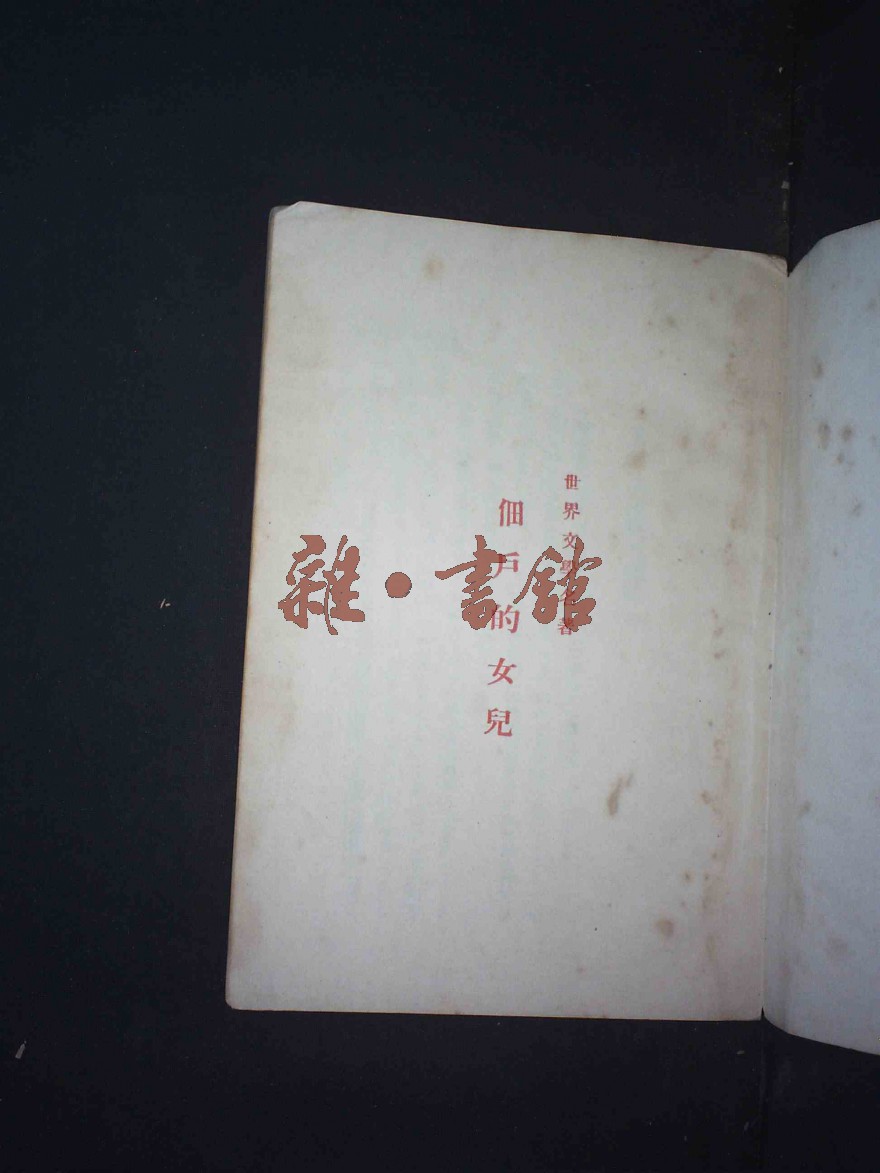 世界文學名著
佃戶的女兒
雜·書館